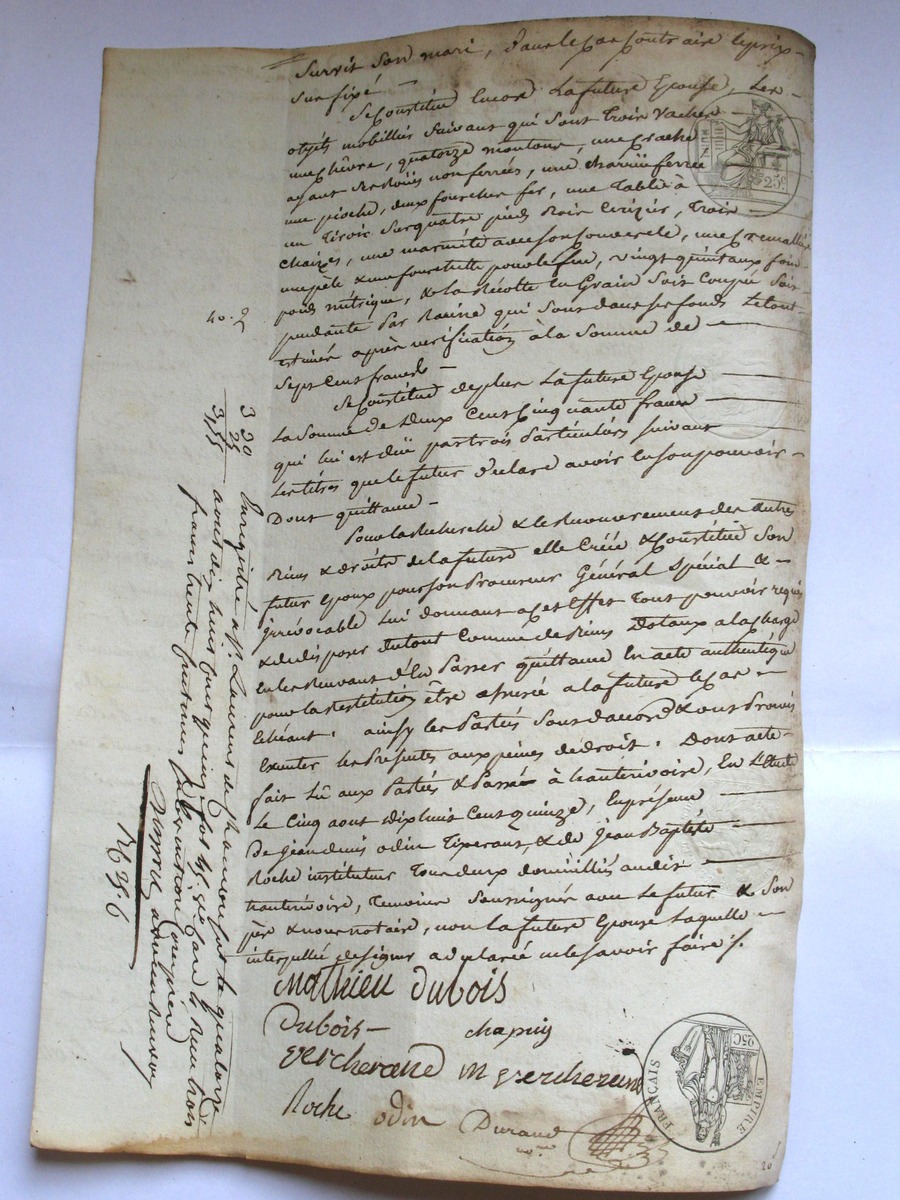 survit son mari, dans le cas contraire le prix
sus fixé —
Se Constitue encore La future Epouse, Les
objets mobilliés suivans qui sont Trois Vaches
une chèvre, quatorze moutons, une
ayant ses Roües non ferrées, une charrüe ferrée
une pioche, deux fourches fer, une Table à
un Tiroir sur quatre pieds Bois Cerizier, Trois
Chaizes, une marmite avec son Couvercle, une Cremallière
une pèle & une fourchette pour le feu, vingt quintaux foin
poids métrique, & la Récolte en Grain Soit Coupée Soit
pendante Par Racine qui Sont dans ses fonds Le tout
estimé après vérification à la Somme de
Sept Cens francs —
Se Constitue de plus La future Epouse
La Somme de Deux Cent Cinquante francs
qui lui est düe par trois Particuliers suivant
Les titres que le futur déclare avoir en son pouvoir
Dont quittance —
Pour la Recherche & le Recouvrement des autres
Biens & droits de la future elle Créé & Constitue Son
futur Epoux pour son Procureur Général Spécial &
irrévocable Lui donnant a cet Effet Tout pouvoir requis
& de disposer du tout Comme de Biens Dotaux a la Charge
en les Recevant d'en Passer quittance En acte authentique
pour la Restitution être assurée a la future le Cas
Echéant. ainsy les Parties Sont d'accord & ont Promis
Exécuter les Présentes aux peines de droit. Dont acte
fait Lû aux Parties & Passé à hauterivoire, En L'Etude
Le Cinq aout dix huit Cent quinze, En présence
De Jean denis odin Tixerans, & de Jean Baptiste
Roche instituteur Tous deux domicilliés audit
hauterivoire, Temoins Soussignés avec Le futur & Son
père & nous notaire, non La future Epouse Laquelle
interpellée de signer a déclaré ne le savoir faire ./.
Mathieu dubois
Dubois chapuy
vercherand m vercherand
Roche odin Durand
no.re
40. 9
3 30
25
3,55
Enregistré a St. Laurent de chamousset le quatorze
aout dix huit Cent quinze fol. 45. R. Case 4 Reçu trois
francs trente Centimes Subvention Comprise
25C
EMPIRE FRANÇAIS
25C
20